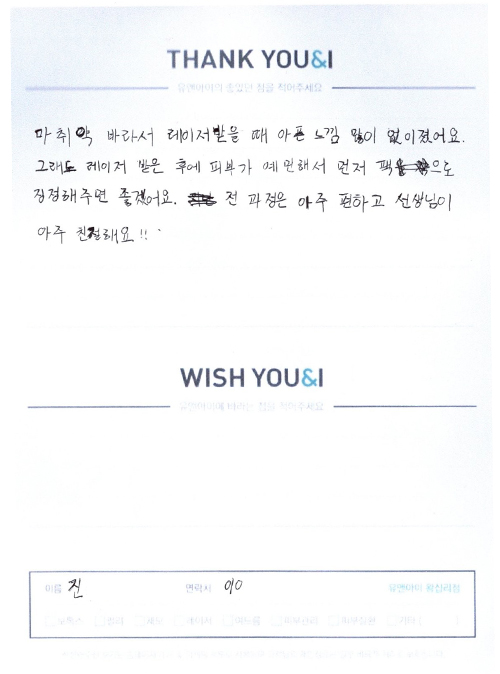 THANK YOU&I
유앤아이의 좋았던 점을 적어주세요
마취약 바라서 레이저받을 때 아픈 느낌 많이 없이졌어요.
그래도 레이저 받은 후에 피부가 예민해서 먼저 팩으로
징정해주면 좋겠어요. 전 과정은 아주 편하고 선생님이
아주 친절해요!!
WISH YOU&I
유앤아이에 바라는 점을 적어주세요
이름 진 연락처 010 유앤아이 왕십리점
보톡스 필러 제모 레이저 여드름 피부관리 기타 (